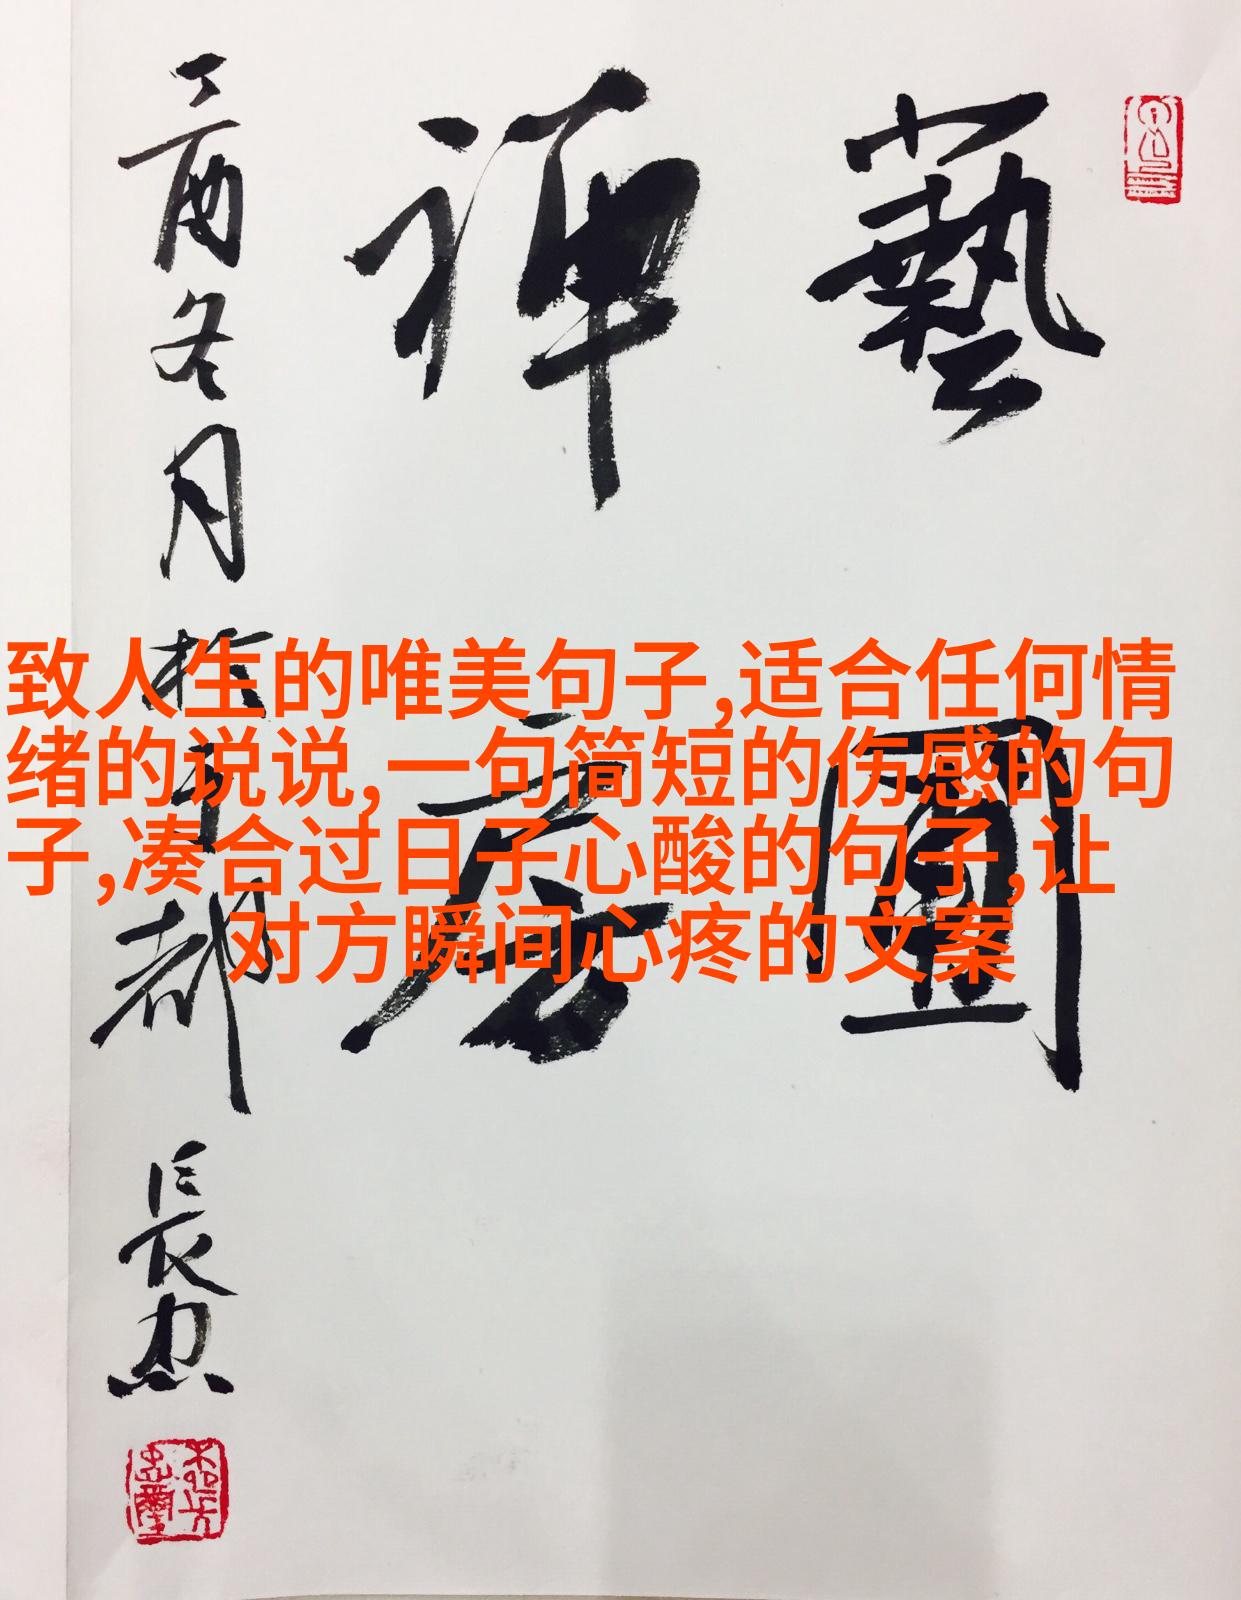 藝
禪房
丁酉冬月於都
長忠
致人生的唯美句子,适合任何情
绪的说说,一句简短的伤感的句
子,凑合过日子心酸的句子,让
对方瞬间心疼的文案